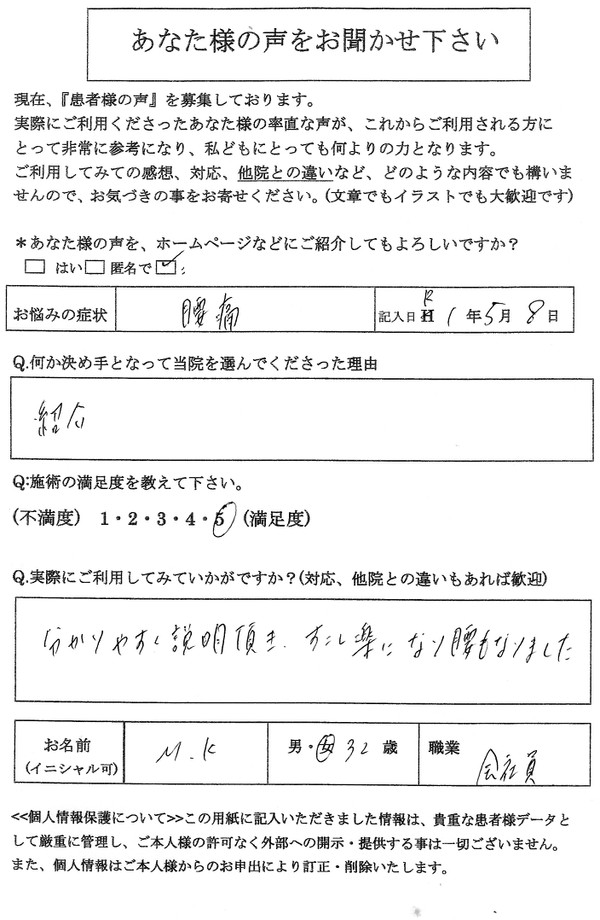 あなた様の声をお聞かせ下さい
現在、『患者様の声』を募集しております。
実際にご利用くださったあなた様の率直な声が、これからご利用される方に
とって非常に参考になり、私どもにとっても何よりの力となります。
ご利用してみての感想、対応、他院との違いなど、どのような内容でも構いま
せんので、お気づきの事をお寄せください。(文章でもイラストでも大歓迎です)
＊あなた様の声を、ホームページなどにご紹介してもよろしいですか？
□ はい □ 匿名で ☑ :
お悩みの症状 腰痛 記入日 R H 1年5月8日
Q.何か決め手となって当院を選んでくださった理由
紹介
Q:施術の満足度を教えて下さい。
(不満度) 1・2・3・4・5 (満足度)
Q.実際にご利用してみていかがですか？(対応、他院との違いもあれば歓迎)
分かりやすく説明頂き、すこし楽になり腰もなりました
お名前 (イニシャル可) M.K 男・女 32歳 職業 会社員
<<個人情報保護について>>この用紙に記入いただきました情報は、貴重な患者様データと
して厳重に管理し、ご本人様の許可なく外部への開示・提供する事は一切ございません。
また、個人情報はご本人様からのお申出により訂正・削除いたします。